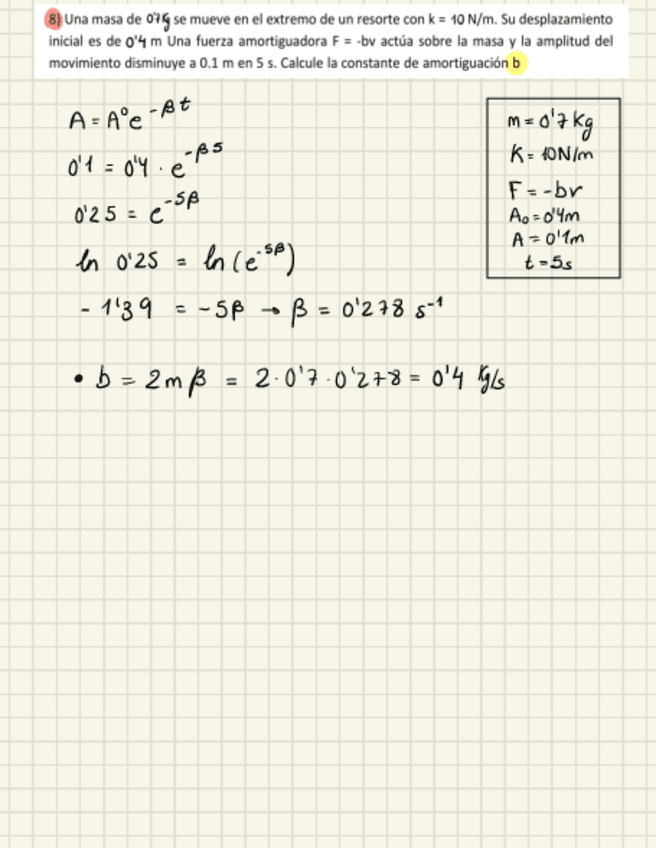 8) Una masa de 0'7 kg se mueve en el extremo de un resorte con k = 10 N/m. Su desplazamiento
inicial es de 0'4 m Una fuerza amortiguadora F = -bv actúa sobre la masa y la amplitud del
movimiento disminuye a 0.1 m en 5 s. Calcule la constante de amortiguación b
A = A°e^-βt
0'1 = 0'4 · e^-β5
0'25 = e^-5β
ln 0'25 = ln (e^-5β)
- 1'39 = -5β → β = 0'278 s^-1
• b = 2mβ = 2·0'7·0'278 = 0'4 kg/s
m = 0'7 kg
K = 10N/m
F = -bv
A₀ = 0'4m
A = 0'1m
t = 5s